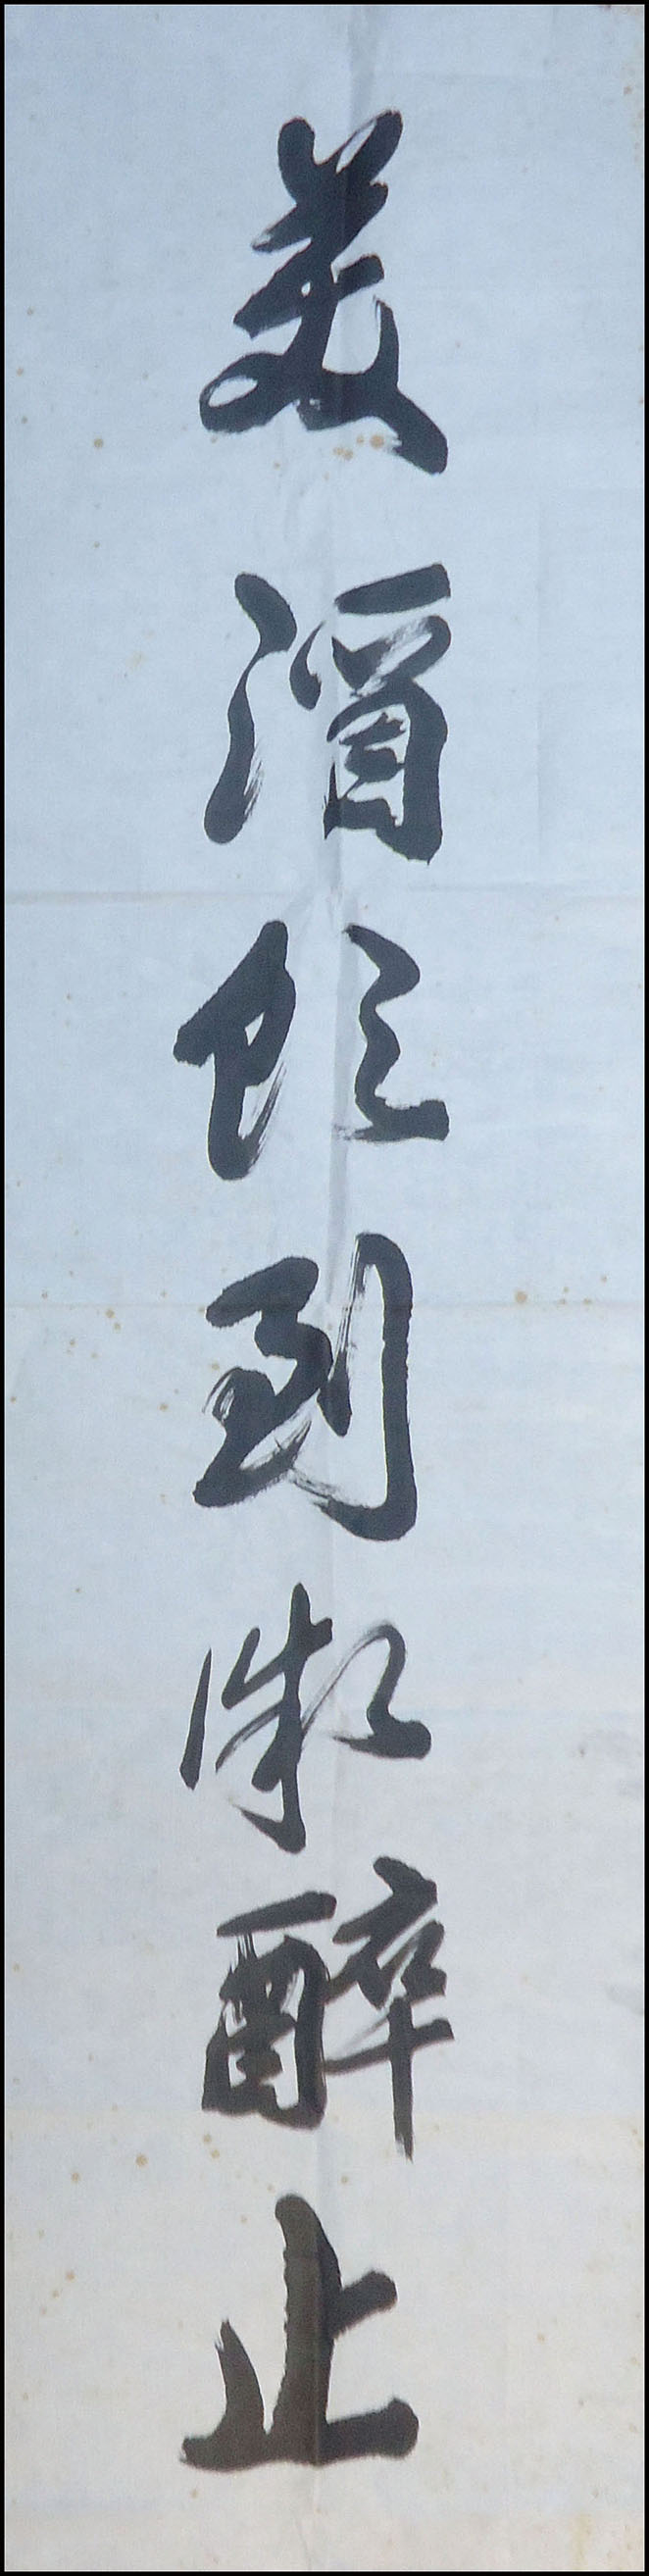 美酒飲到微醉止